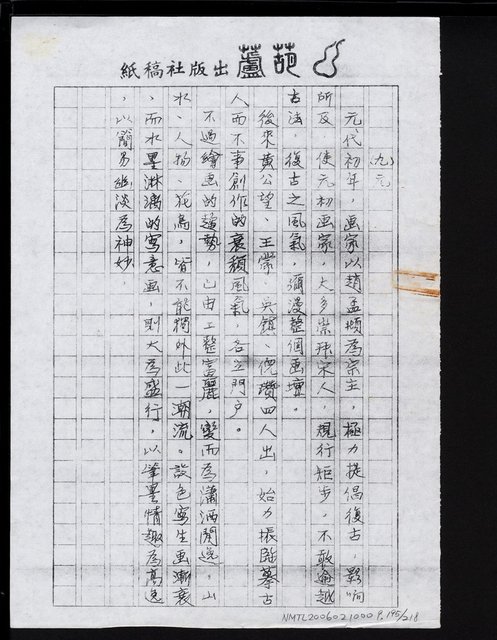 紙稿社版出蘆葫
（九）元
元代初年，画家以趙孟頫為宗主，極力提倡復古，影响
所及，使元初画家，大多崇拜宋人，規行矩步，不敢逾越
古法，復古之風氣，瀰漫整個画壇。
後來黃公望、王蒙、吳鎮、倪瓚四人出，始力振臨摹古
人而不事創作的衰頹風氣，各立門戶。
不過繪画的趨勢，已由工整富麗，變而為瀟洒閒逸，山
水、人物、花鳥，皆不能獨外此一潮流。設色寫生画漸衰
，而水墨淋漓的寫意画，則大為盛行，以筆墨情趣為高逸
，以簡易幽淡為神妙。
NMTL20060210009 P.195/218